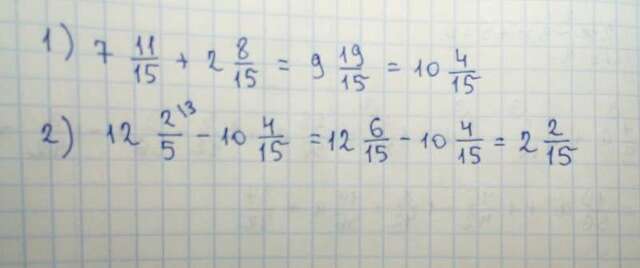 1) 7 11/15 + 2 8/15 = 9 19/15 = 10 4/15
2) 12 2\3/5 - 10 4/15 = 12 6/15 - 10 4/15 = 2 2/15